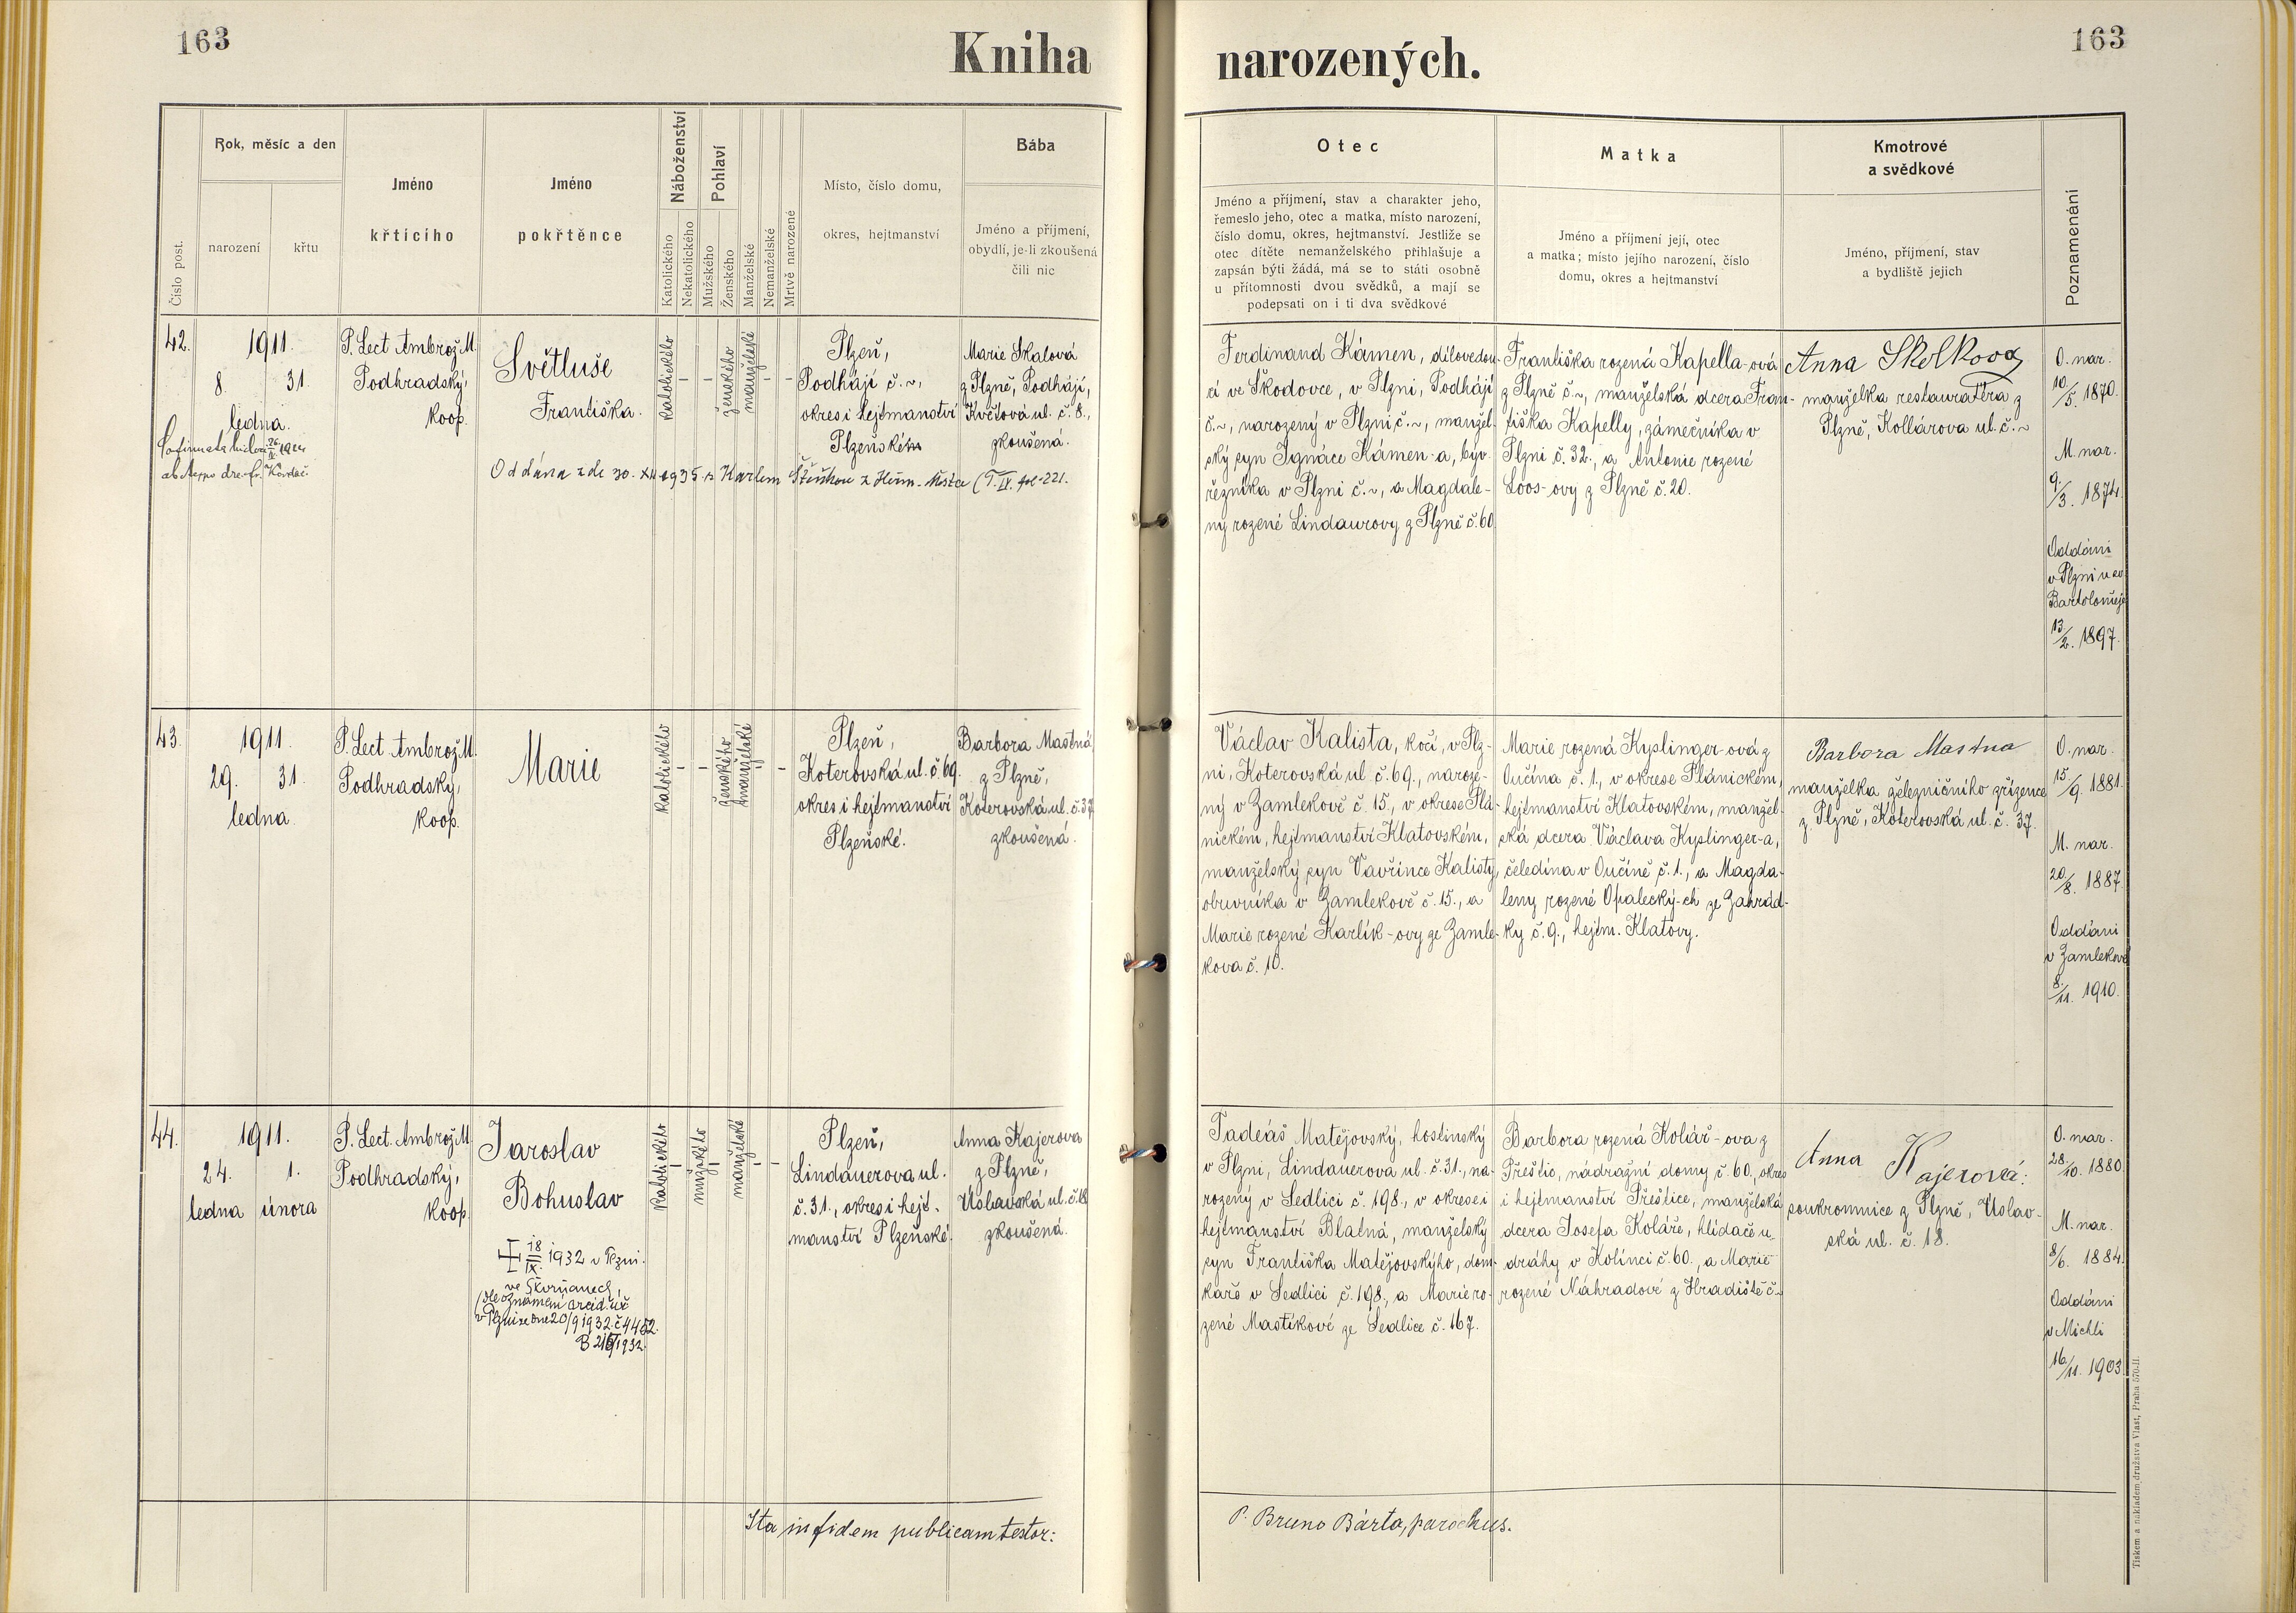 163
Kniha
narozených.
163
Číslo post.
Rok, měsíc a den
narození
křtu
Jméno
křticího
Jméno
pokřtěnce
Náboženství
Katolického
Nekatolického
Pohlaví
Mužského
Ženského
Manželské
Nemanželské
Mrtvě narozené
Místo, číslo domu,
okres, hejtmanství
Bába
Jméno a příjmení,
obydlí, je-li zkoušená
čili nic
Otec
Jméno a příjmení, stav a charakter jeho,
řemeslo jeho, otec a matka, místo narození,
číslo domu, okres, hejtmanství. Jestliže se
otec dítěte nemanželského přihlašuje a
zapsán býti žádá, má se to státi osobně
u přítomnosti dvou svědků, a mají se
podepsati on i ti dva svědkové
Matka
Jméno a příjmení její, otec
a matka; místo jejího narození, číslo
domu, okres a hejtmanství
Kmotrové
a svědkové
Jméno, příjmení, stav
a bydliště jejich
Poznamenání
42.
1911.
8. 31.
ledna.
P. Lect Ambrož M.
Podhradský,
koop.
Světluše
Františka.
katolického
-
-
ženského
manželské
-
-
Plzeň,
Podhájí č. ~,
okres i hejtmanství
Plzeňské
Marie Skalová
z Plzně, Podhájí,
Květová ul. č. 8.,
zkoušená.
Oddána zde 30. XII 1935 s Karlem
Ferdinand Kámen, dílovedou-
cí ve Škodovce, v Plzni, Podhájí
č. ~, narozený v Plzni č. ~, manžel-
ský syn Ignáce Kámen-a, býv.
řezníka v Plzni č. ~, a Magdale-
ny rozené Lindaurovy z Plzně č. 60.
Františka rozená Kapella-ová
z Plzně č. ~, manželská dcera Fran-
tiška Kapelly, zámečníka v
Plzni č. 32., a Antonie rozené
Loos-ovy z Plzně č. 20.
Anna
manželka restauratéra z
Plzně, Kollárova ul. č. ~
O. nar.
10/5. 1870.
M. nar.
9/3. 1874.
Oddáni
v Plzni u sv.
Bartoloměje
13/2. 1897.
43.
1911.
29. 31.
ledna
P. Lect. Ambrož M.
Podhradský,
koop.
Marie
katolického
-
-
ženského
manželské
-
-
Plzeň,
Koterovská ul. č. 69.
okres i hejtmanství
Plzeňské.
Barbora Mastná
z Plzně,
Koterovská ul. č. 37
zkoušená.
Václav Kalista, kočí, v Plz-
ni, Koterovská ul č. 69., naroze-
ný v Zamlekově č. 15., v okrese Plá-
nickém, hejtmanství Klatovském,
manželský syn Vavřince Kalisty,
obuvníka v Zamlekově č. 15., a
Marie rozené Karlík-ovy ze Zamle-
kova č. 10.
Marie rozená Kyslinger-ová z
Oučína č. 1., v okrese Plánickém,
hejtmanství Klatovském, manžel-
ská dcera Václava Kyslinger-a,
čeledína v Oučíně č. 1., a Magda-
leny rozené Opalecký-ch ze Zahrád-
ky č. 9., hejtm. Klatovy.
Barbora Mastna
manželka železničního zřízence
z Plzně, Koterovská ul. č. 37.
O. nar.
15./9. 1881.
M. nar.
20/8. 1887.
Oddáni
v Zamlekově
8./11. 1910.
44.
1911.
24. 1.
ledna února
P. Lect. Ambrož M.
Podhradský,
koop.
Jaroslav
Bohuslav
18/IX. 1932 v Plzni.
ve Škvrňanech,
(dle oznámení
v Plzni ze dne 20/9 1932 č 4452.
katolického
-
mužského
-
manželské
-
-
Plzeň,
Lindauerova ul.
č. 31., okres i hejt-
manství Plzeňské.
Anna Kajerova
z Plzně,
Úslavská ul. č. 18
zkoušená.
Tadeáš Matějovský, hostinský
v Plzni, Lindauerova ul. č. 31., na-
rozený v Sedlici č. 198., v okrese i
hejtmanství Blatná, manželský
syn Františka Matějovskýho, dom-
káře v Sedlici č. 198., a Marie ro-
zené Mastíkové ze Sedlice č. 167.
Barbora rozená Kolář-ova z
Přeštic, nádražní domy č. 60, okres
i hejtmanství Přeštice, manželská
dcera Josefa Koláře, hlídače u
dráhy v Kolinci č. 60., a Marie
rozené Náhradové z Hradiště č. ~
Anna Kajerová:
soukromnice z Plzně, Úslav-
ská ul. č. 18.
O. nar.
28./10. 1880.
M. nar.
8/6. 1884.
Oddáni
v Michli
16/11. 1903.
Ita in fidem publicam testor:
P. Bruno Bárta, parochus.
Tiskem a nákladem družstva Vlast, Praha 570-II.